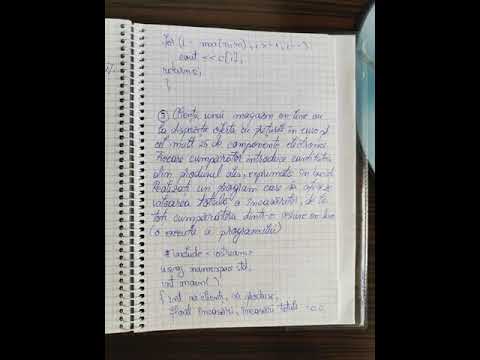 for (i = max(n,m); i>=1; i--)
cout << c[i];
return 0;
}
⑤ Clienții unui magazin on-line au
la dispoziție oferta cu prețurile în euro a
cel mult 25 de componente electronice
Fiecare cumpărător introduce cantitatea
din produsul ales, exprimată în bucăți.
Realizați un program care să afișeze
valoarea totală a încasărilor, de la
toți cumpărătorii dintr-o sesiune on-line
(o execuție a programului)
# include <iostream>
using namespace std;
int main()
{ int nr clienti, nr produse;
float încasări, încasări totale = 0.0